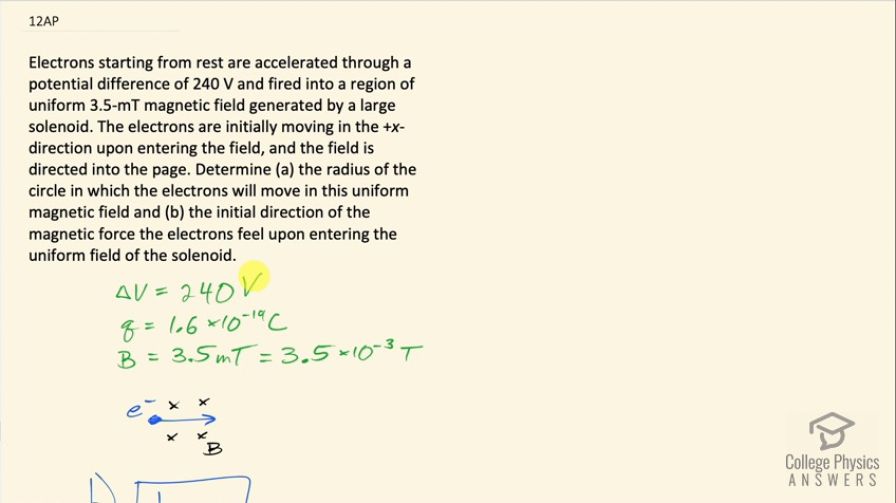 12AP
Electrons starting from rest are accelerated through a
potential difference of 240 V and fired into a region of
uniform 3.5-mT magnetic field generated by a large
solenoid. The electrons are initially moving in the +x-
direction upon entering the field, and the field is
directed into the page. Determine (a) the radius of the
circle in which the electrons will move in this uniform
magnetic field and (b) the initial direction of the
magnetic force the electrons feel upon entering the
uniform field of the solenoid.
ΔV = 240 V
q = 1.6 × 10⁻¹⁹ C
B = 3.5 mT = 3.5 × 10⁻³ T
e⁻ × ×
× ×
B
b)
College Physics
ANSWERS